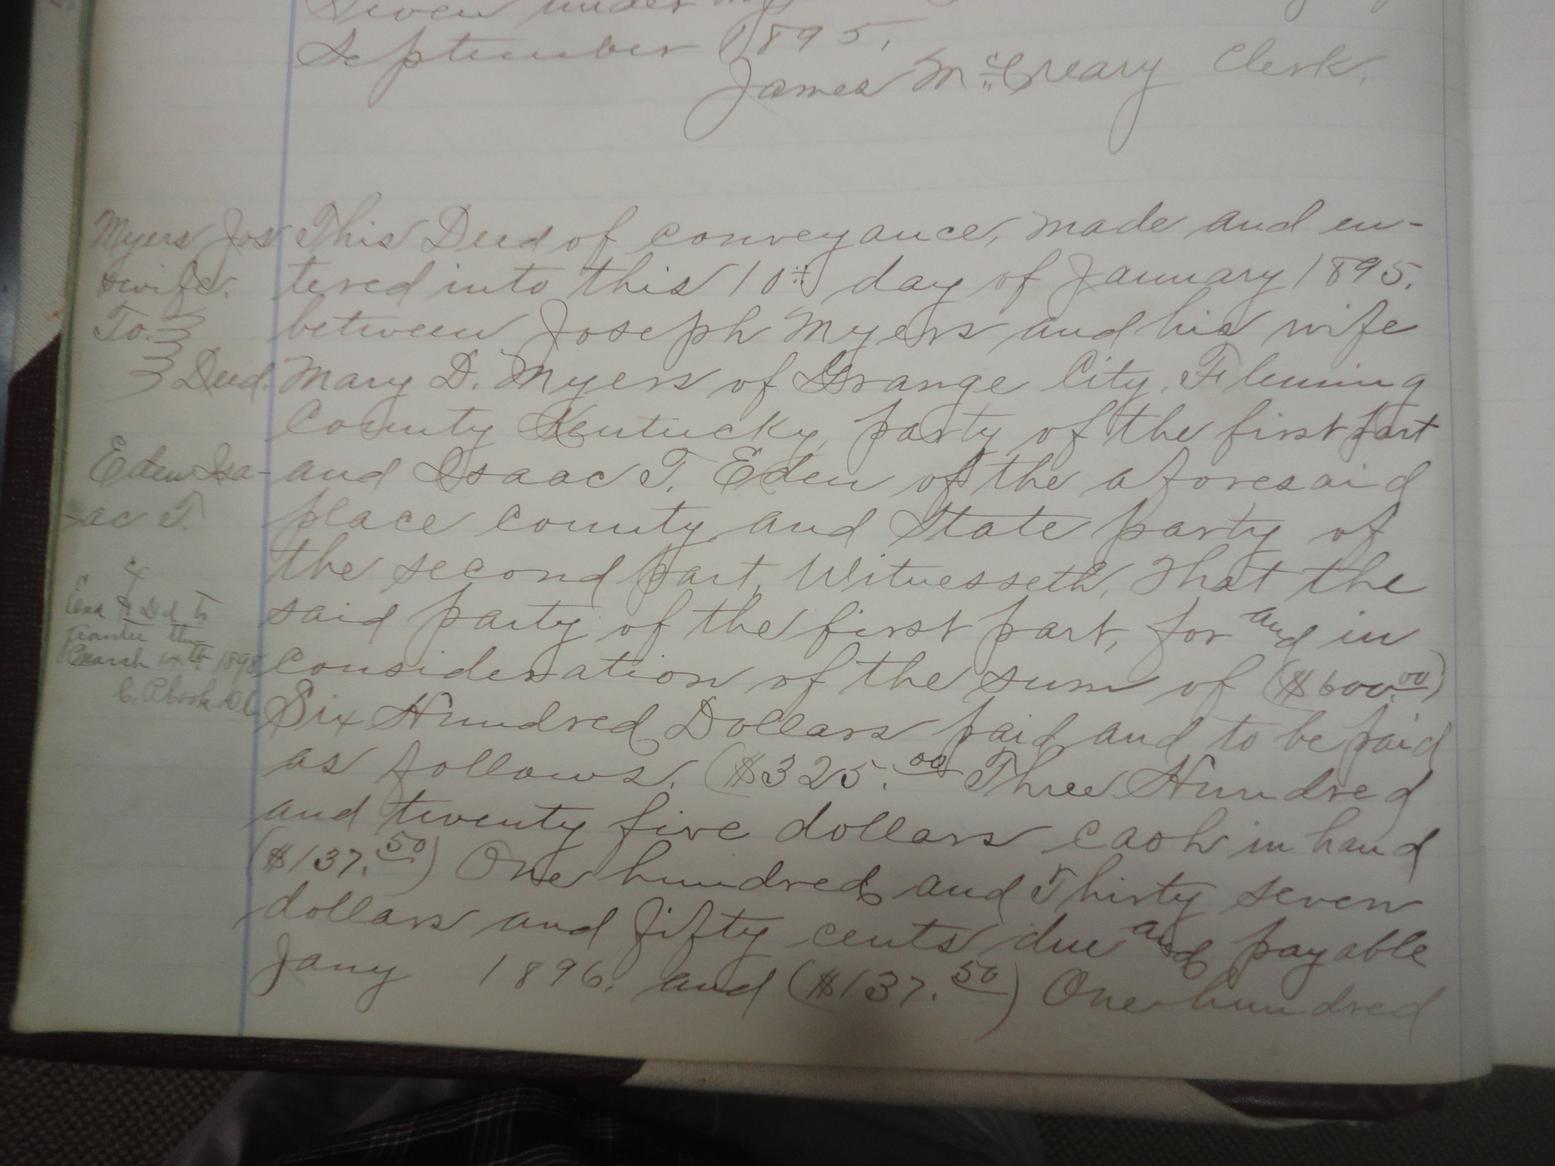 Given under my
September 1895.
James McCreary Clerk.
Myers Jos
& wife.
To.
Deed.
Eden Isa-
ac T.
Exa & Dd to
Grantee this
March 14th 1898
C. P. Cook D C
This Deed of conveyance, made and en-
tered into this 10th day of January 1895.
between Joseph Myers and his wife
Mary D. Myers of Grange City, Fleming
County Kentucky party of the first part
and Isaac T. Eden of the aforesaid
place county and State party of
the second part, Witnesseth, That the
said party of the first part, for and in
consideration of the sum of ($600.00)
Six Hundred Dollars paid and to be paid
as follows. ($325.00 Three Hundred
and twenty five dollars cash in hand
($137.50) One hundred and Thirty seven
dollars and fifty cents due and payable
Jany 1896. and ($137.50) One hundred